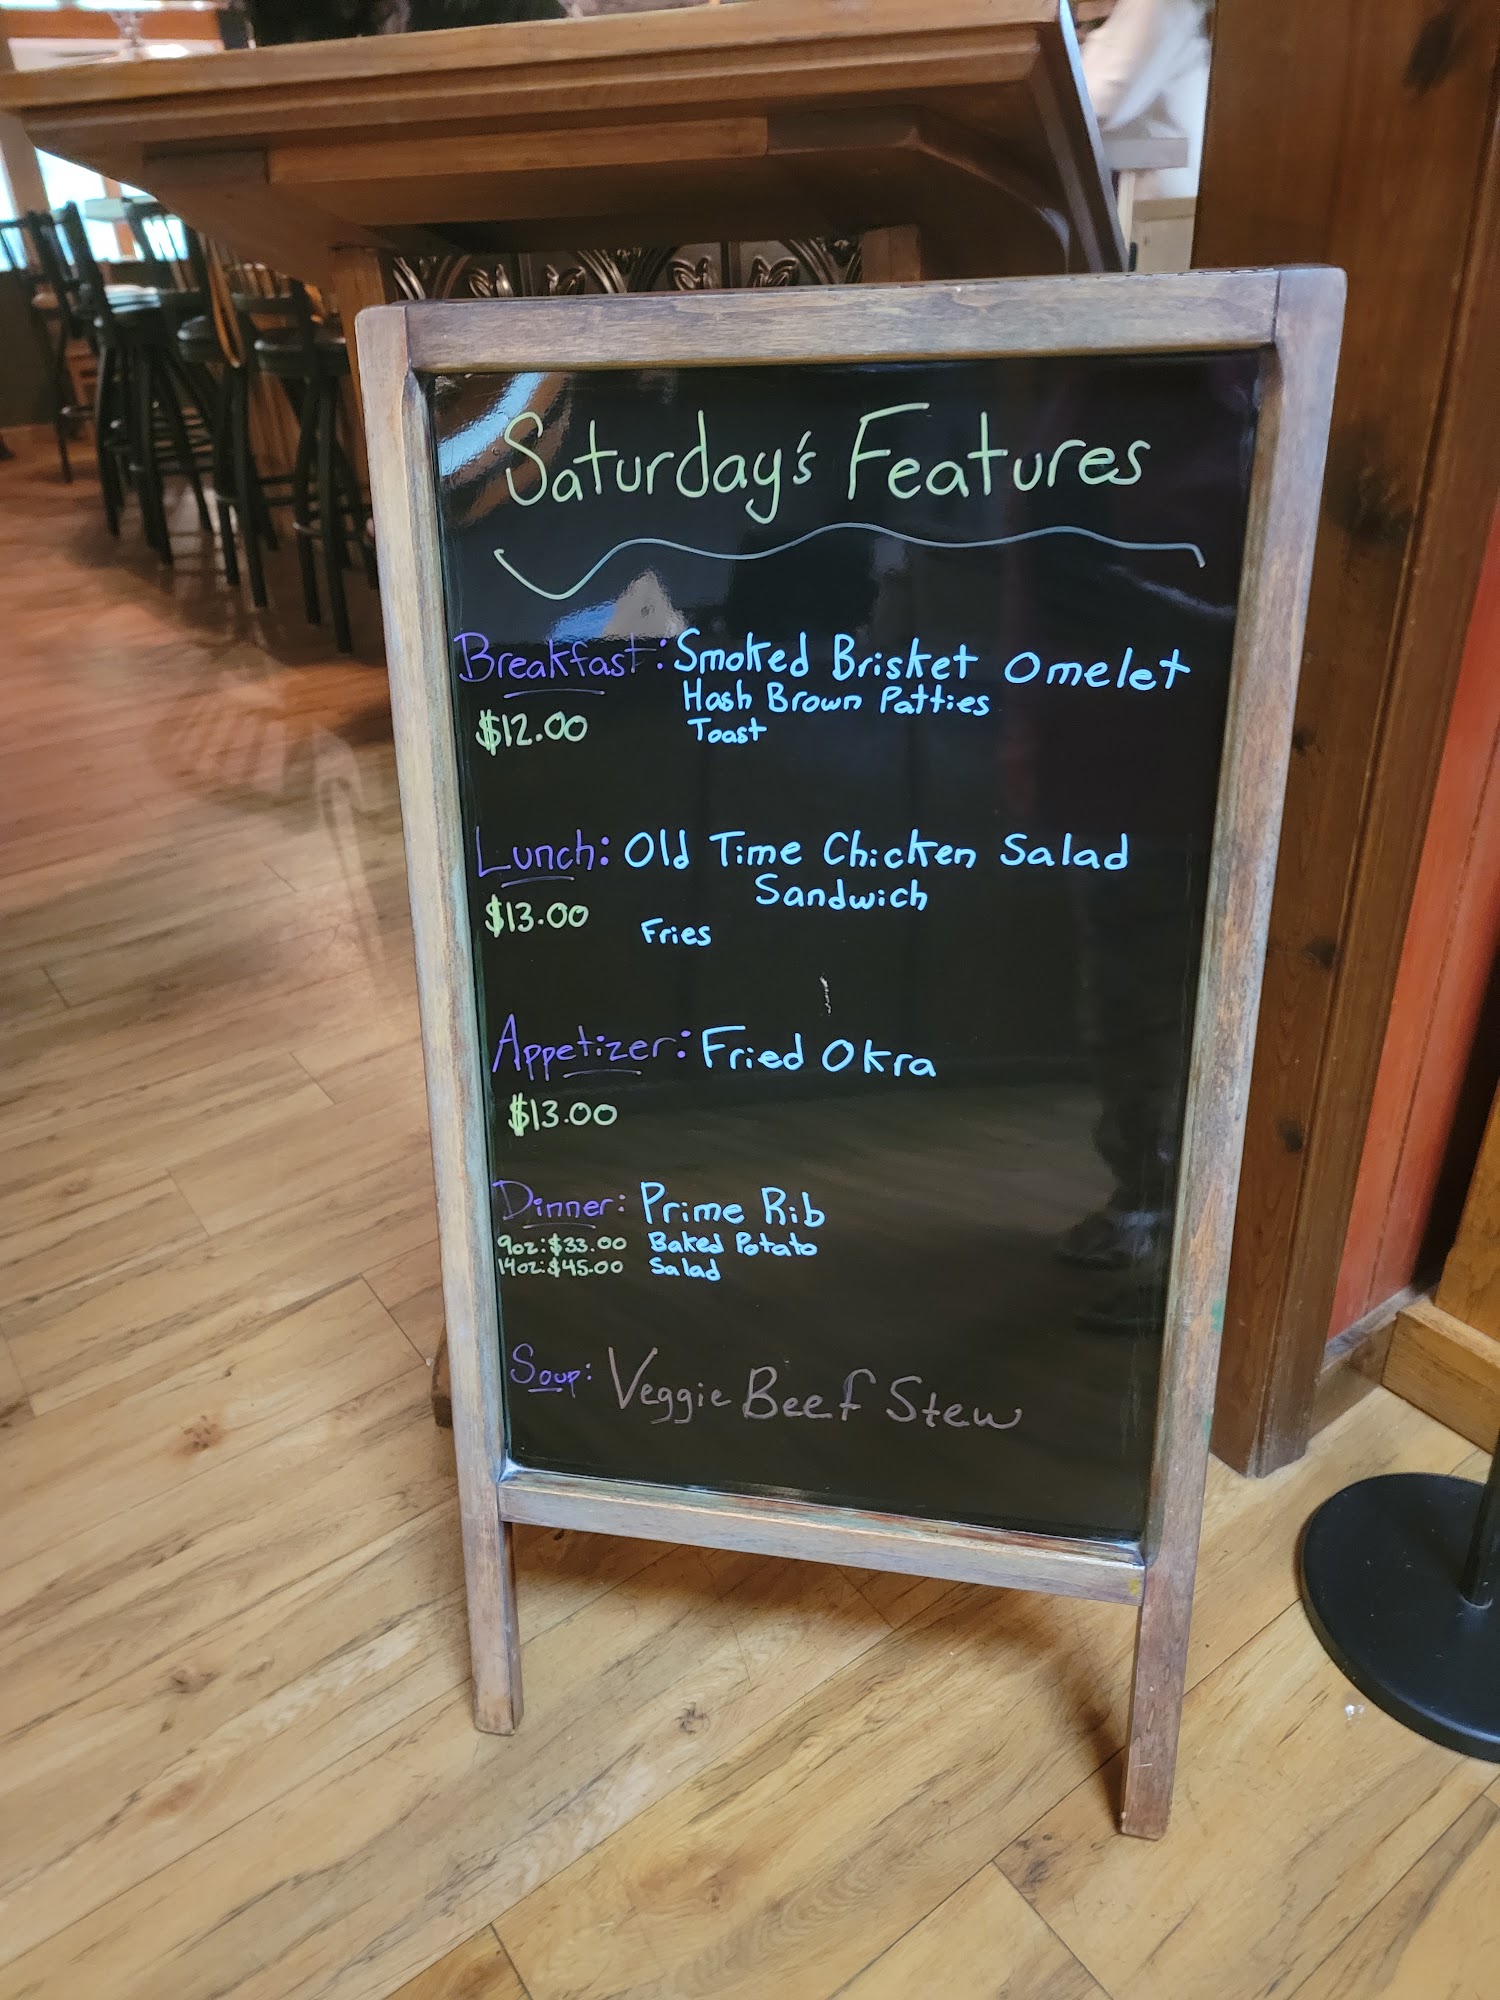 Saturday's Features
Breakfast: Smoked Brisket Omelet
Hash Brown Patties
$12.00 Toast
Lunch: Old Time Chicken Salad
Sandwich
$13.00 Fries
Appetizer: Fried Okra
$13.00
Dinner: Prime Rib
9oz: $33.00 Baked Potato
14oz: $45.00 Salad
Soup: Veggie Beef Stew